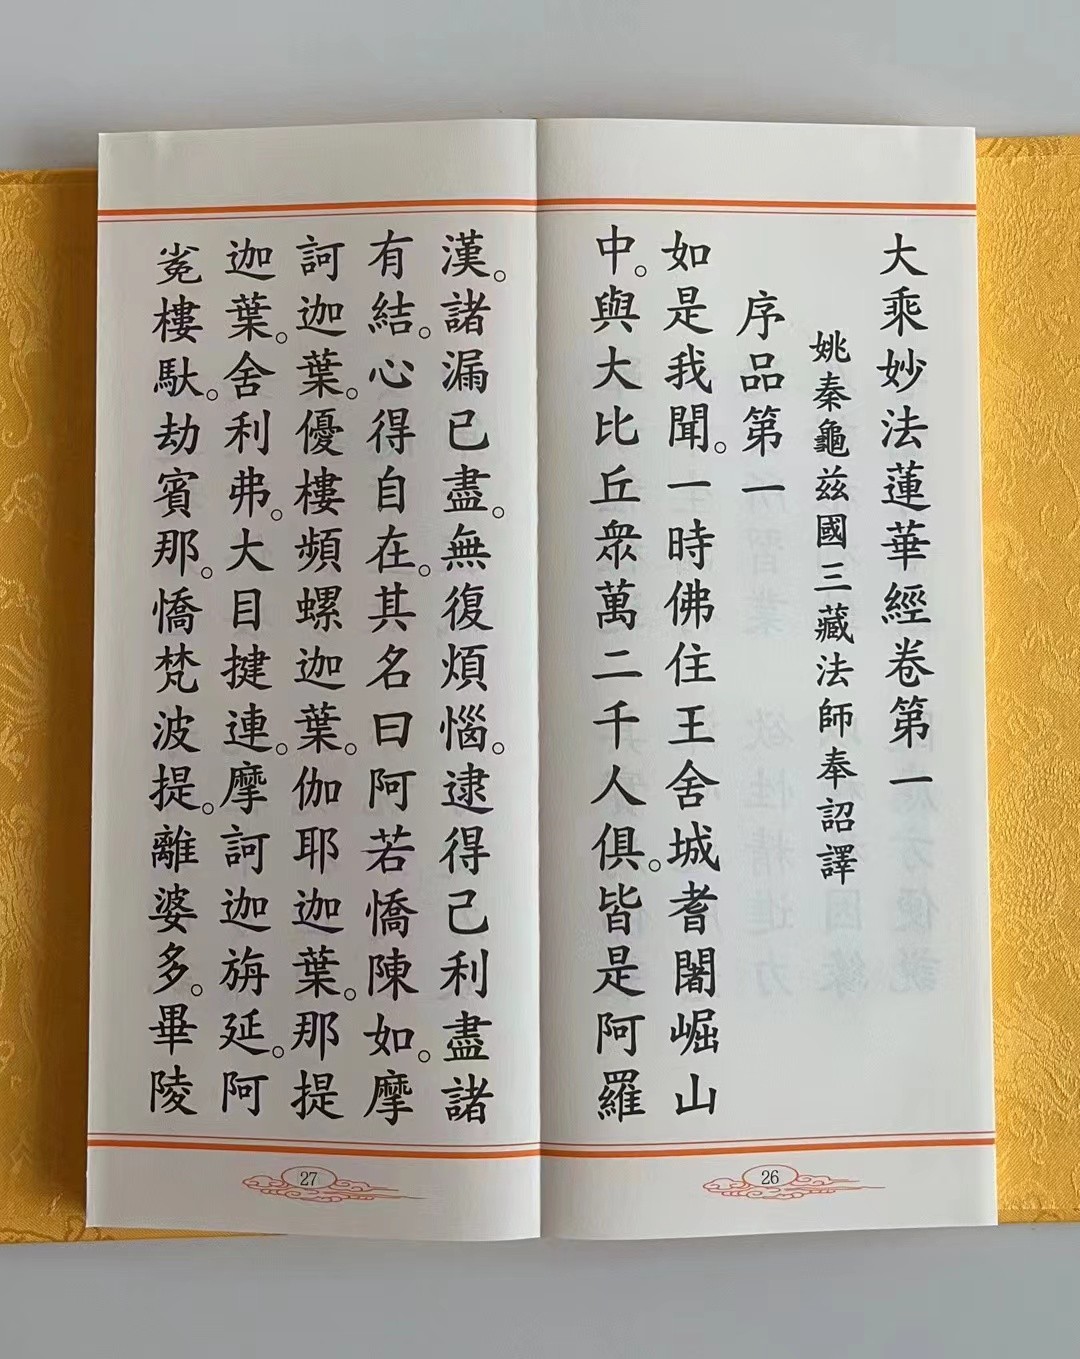 大乘妙法蓮華經卷第一
姚秦龜茲國三藏法師奉詔譯
序品第一
如是我聞。一時佛住王舍城耆闍崛山
中。與大比丘眾萬二千人俱。皆是阿羅
26
漢。諸漏已盡。無復煩惱。逮得己利盡諸
有結。心得自在。其名曰阿若憍陳如。摩
訶迦葉。優樓頻螺迦葉。伽耶迦葉。那提
迦葉。舍利弗。大目揵連。摩訶迦旃延。阿
㝹樓馱。劫賓那。憍梵波提。離婆多。畢陵
27